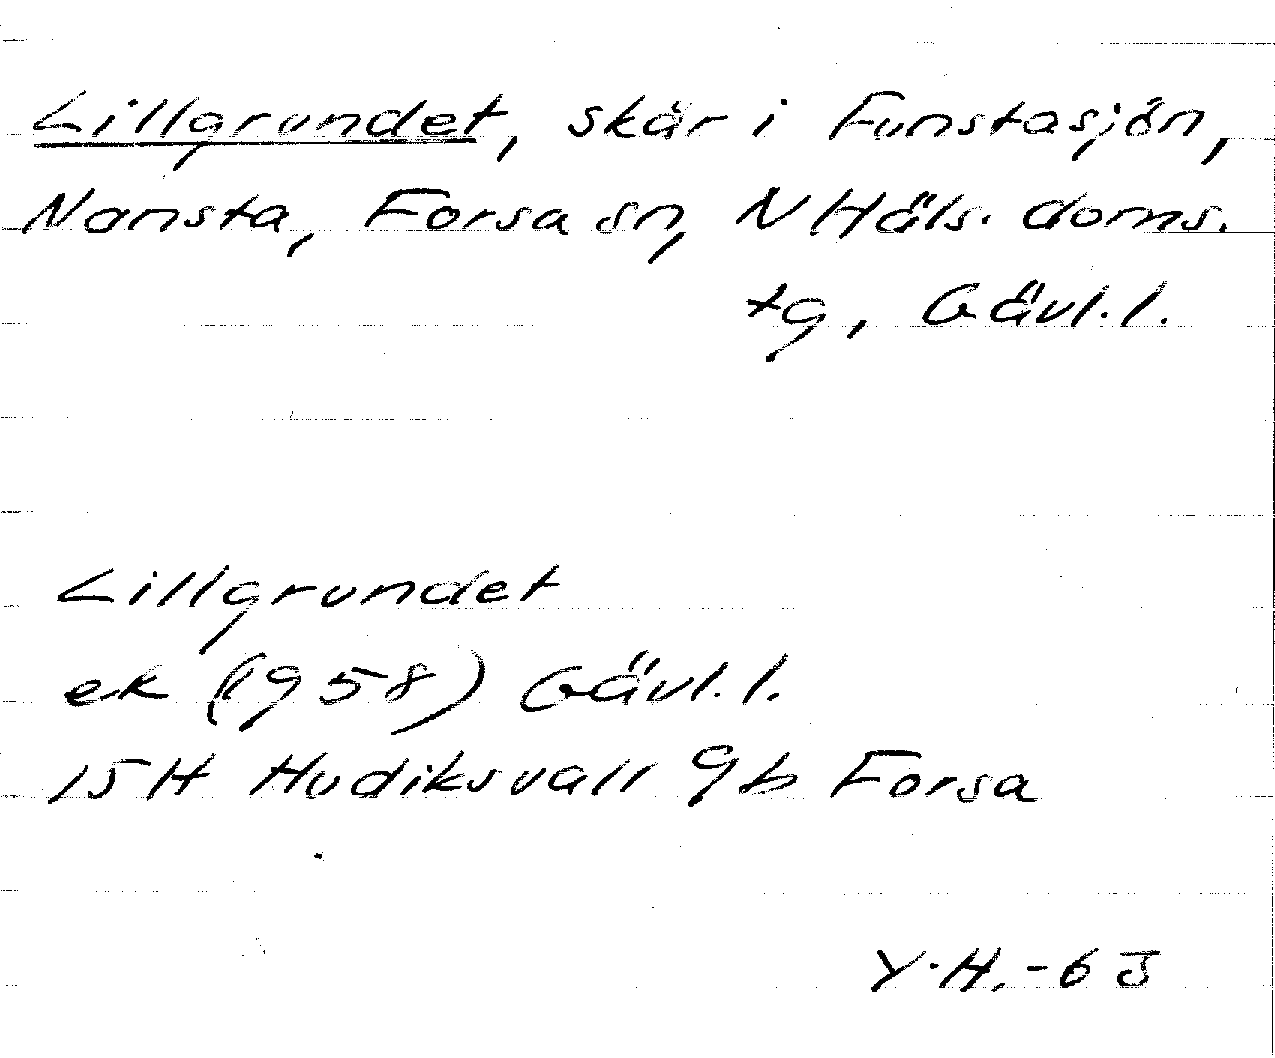 Lillgrundet, skär i Funstasjön,
Nansta, Forsa sn, N Häls. doms.
tg, Gävl. l.
Lillgrundet
ek (1958) Gävl. l.
15H Hudiksvall 9b Forsa
Y.H. -63